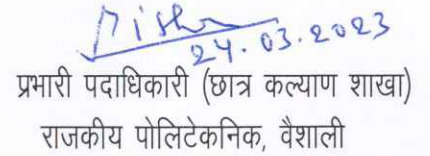 24.03.2023
प्रभारी पदाधिकारी (छात्र कल्याण शाखा)
राजकीय पोलिटेकनिक, वैशाली